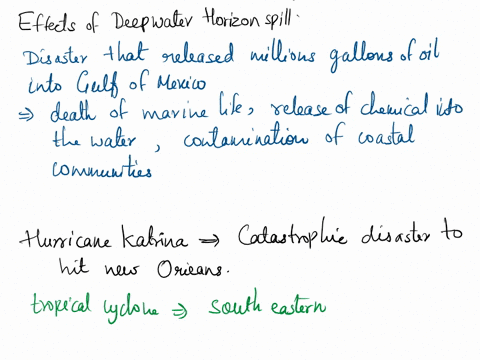 Effects of Deepwater Horizon spill.
Disaster that released millions gallons of oil
into Gulf of Mexico
⇒ death of marine life, release of chemical into
the water, contamination of coastal
communties
Hurricane Katrina ⇒ Catastrophic disaster to
hit new Orleans.
tropical cyclone ⇒ south eastern